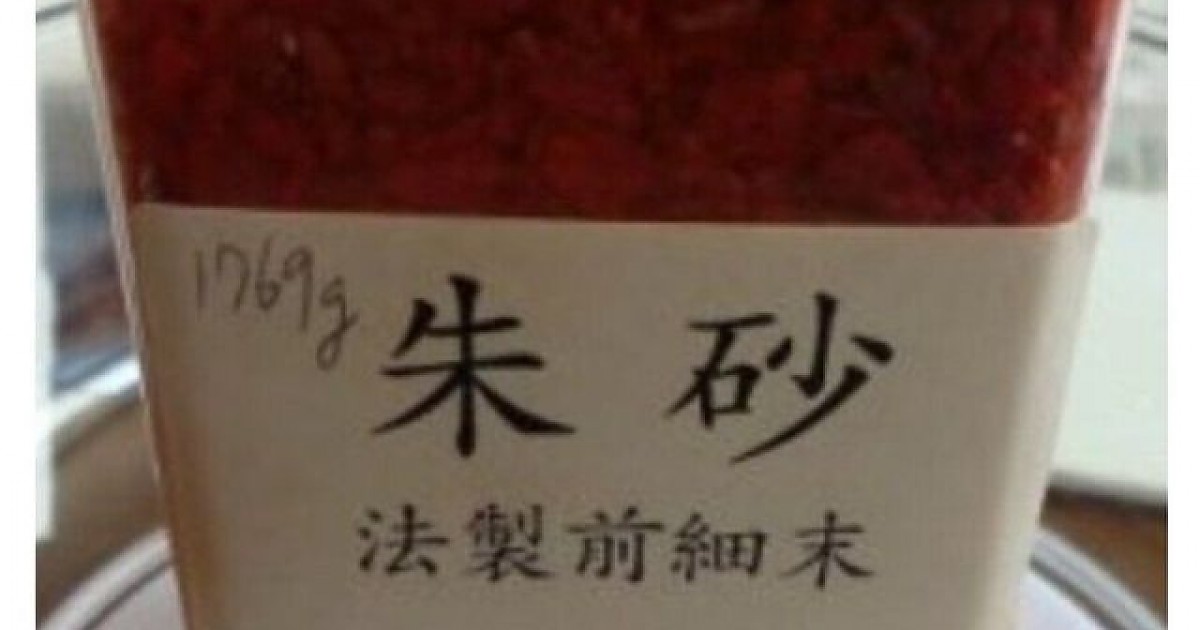 1769g
朱砂
法製前細末